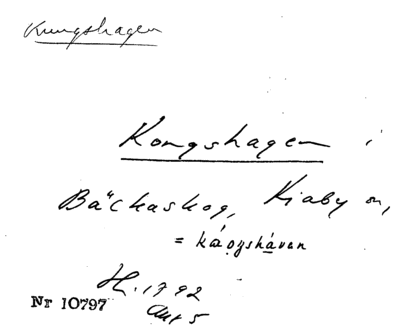 Kungshagen
Kongshagen i
Bäckaskog, Kiaby sn,
H. 1792
Akt 5
Nr 10797